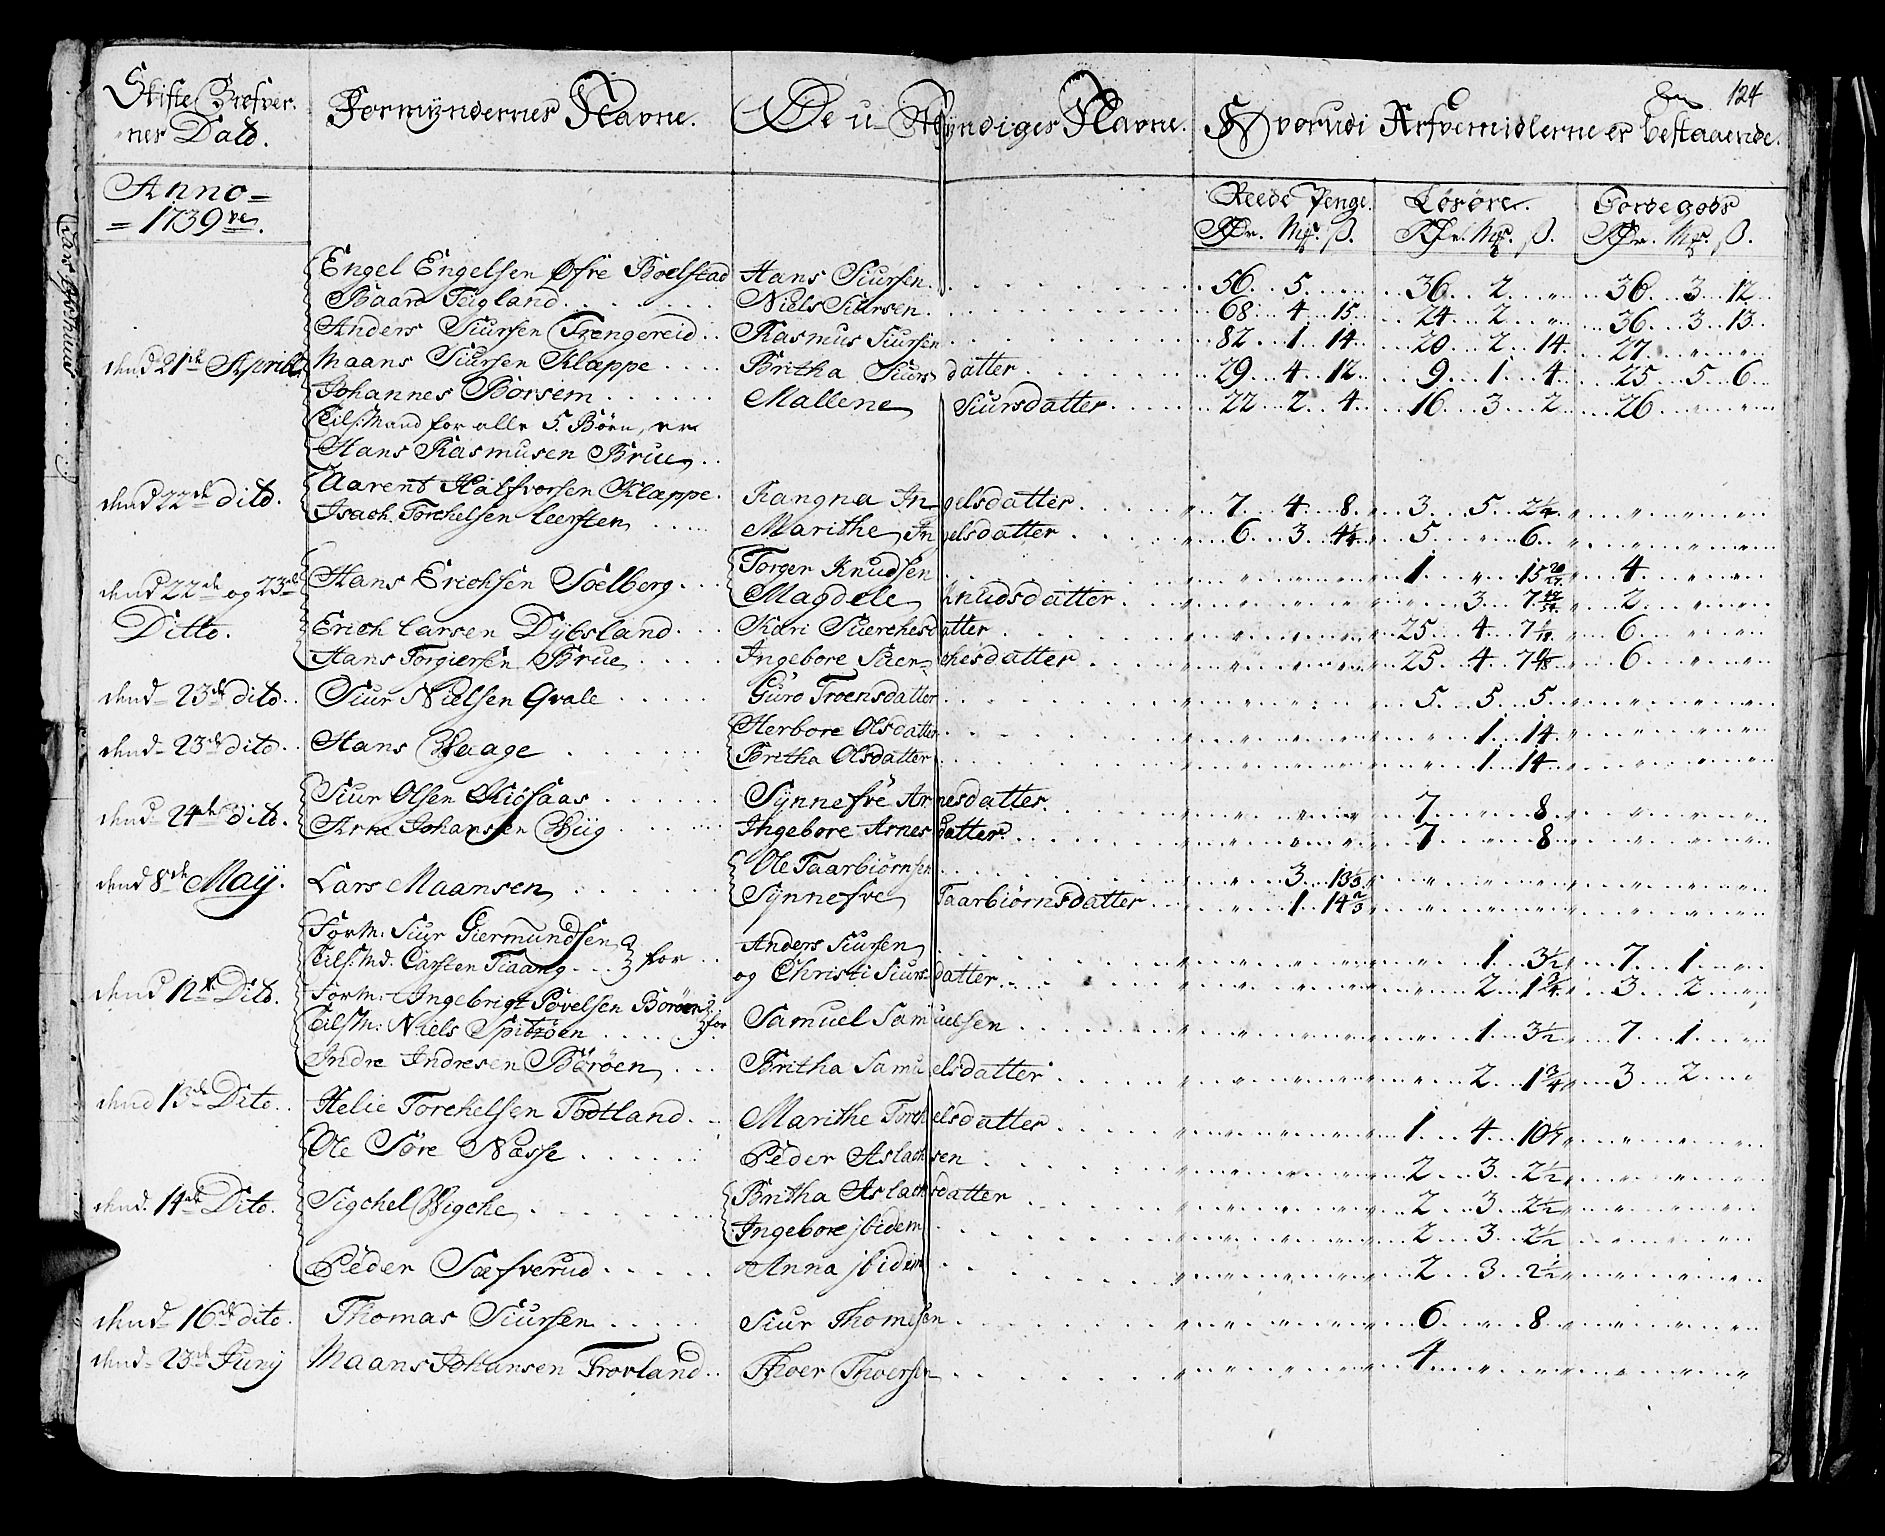 124
Skifte Brefver- Formÿndernes Navne. De u- Mÿndiges Navne. Hvorudi Arfvemidlerne er bestaaende.
nes Dato.
Anno= Reede Penge. Løsøre. Jordegods
= 1739ve. Rdr. Mk. ß. Rdr. Mk. ß. Rdr. Mk. ß.
Engel Engelsen Øfre Boelstad Hans Siursen 56 5 36 2 " 36 3 12
Baard Teigland Niels Siursen 68 4 15 24 2 " 36 3 13
Anders Siursen Trengereid Rasmus Siursen 82 1 14 20 2 14 27 " "
dend 21de Aprill Maans Siursen Klappe Britha Siursdatter 29 4 12 9 1 4 25 5 6
Johannes Børsem Mallene Siursdatter 22 2 4 16 3 2 26 " "
Tils: Mand for alle 5. Børn, er
Hans Rasmusen Brue
dend 22de dito. Aarent Halfvorsen Klappe Rangna Ingelsdatter 7 4 8 3 5 2¼ " " "
Isach Torchelsen Leersten Marithe Ingelsdatter 6 3 4¼ 5 " 6 " " "
dend 22de og 23de Hans Erichsen Soelberg Torger Knudsen " " " 1 " 15 4 " "
Magdele Knudsdatter " " " " 3 7 2 " "
Ditto. Erich Larsen Dÿbsland Kari Siverchesdatter " " " 25 4 7 6 " "
Hans Torgiersen Brue Ingebore Siverchesdatter " " " 25 4 7 6 " "
dend 23de dito Siur Nielsen Qvale Guro Troensdatter " " " 5 5 5 " " "
dend 23de dito Hans Waage Herbore Olsdatter " " " " 1 14 " " "
Britha Olsdatter " " " " 1 14 " " "
dend 24de dito. Siur Olsen Kiösaas Sÿnnefve Arnesdatter " " " 7 " 8 " " "
Arne Johansen Wiig Ingebore Arnesdatter " " " 7 " 8 " " "
dend 8de Maÿ. Lars Maansen Ole Taarbiørnsen " 3 13⅓ " " " " " "
Sÿnnefve Taarbiørnsdatter " 1 14⅔ " " " " " "
Form: Siur Giermundsen for Anders Siursen " " " " 1 3½ 7 1 "
Tils: Md. Carsten Tiaang og Christi Siursdatter " " " " 2 1¾ 3 2 "
dend 12te Dito. Form: Ingebrigt Povelsen Børöen for
Tils M: Niels Spitzöen Samuel Samuelsen " " " " 1 3½ 7 1 "
Indre Indresen Börøen Britha Samuelsdatter " " " " 2 1¾ 3 2 "
dend 13de Dito Helie Torchelsen Todtland Marithe Torchelsdatter " " " 1 4 10½ " " "
Ole Søre Næsse Peder Aslachsen " " " 2 3 2½ " " "
dend. 14de Dito. Sigchel Wigche Britha Aslachsdatter " " " 2 3 2½ " " "
Ingebore jbidem " " " 2 3 2½ " " "
Peder Sæfverud Anna jbidem " " " 2 3 2½ " " "
dend 16de dito. Thomas Siursen Siur Thomesen " " " 6 " 8 " " "
dend 23de Junÿ Maans Johansen Trovland Thoer Thoersen " " " 4 " " " " "